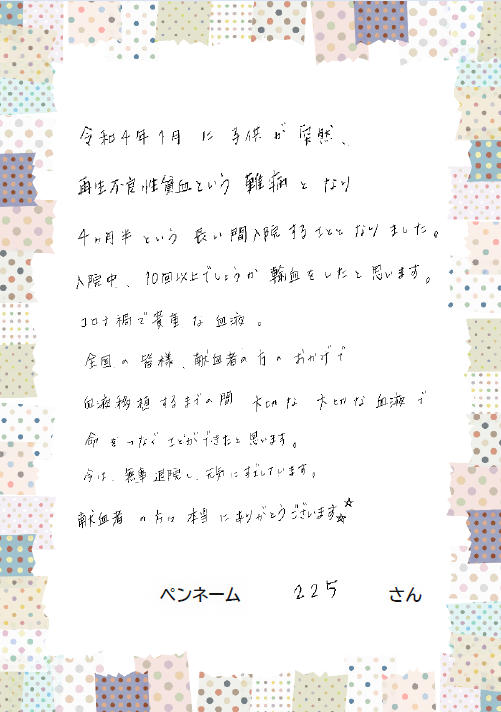 令和4年1月 に 子供 が 突然、
再生不良性貧血という 難病 と なり
4ヶ月半 という 長い間入院 することと なりました。
入院中、10回以上でしょうか 輸血をしたと思います。
コロナ禍で貴重 な 血液。
全国の皆様、献血者の方のおかげで
血液移植するまでの間 大切な 大切な 血液で
命をつなぐことができたと思います。
今は、無事退院し、元気にすごしています。
献血者 の方は本当にありがとうございます☆☆
ペンネーム 225 さん